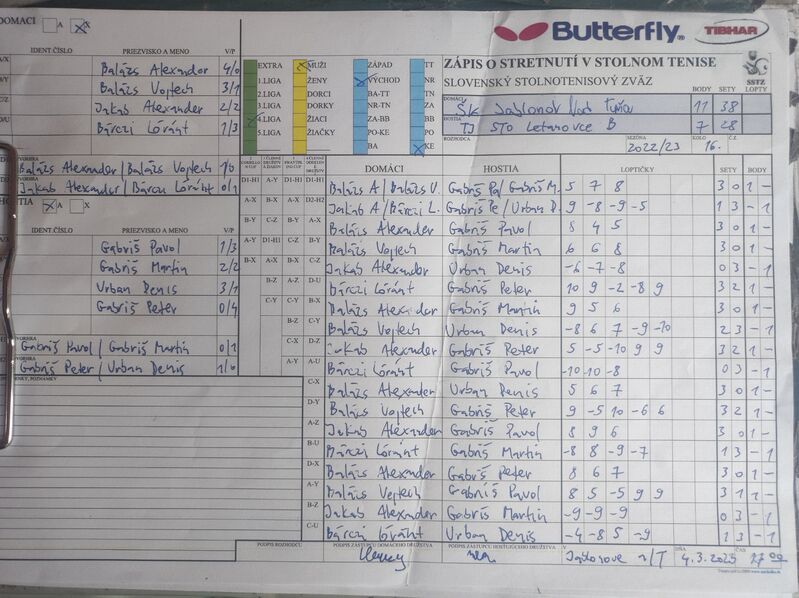 DOMÁCI A X
Butterfly TIBHAR
ZÁPIS O STRETNUTÍ V STOLNOM TENISE
SLOVENSKÝ STOLNOTENISOVÝ ZVÄZ
SSTZ
BODY SETY LOPTY
DOMÁCI ŠK Jablonov nad Turňou 11 38
HOSTIA TJ STO Letanovce B 7 28
ROZHODCA SEZÓNA 2022/23 KOLO 16.
IDENT.ČÍSLO PRIEZVISKO A MENO V/P
Balázs Alexander 4/0
Balázs Vojtech 3/1
Jakab Alexander 2/2
Bárczi Lóránt 1/3
EXTRA MUŽI ZÁPAD TT
1.LIGA ŽENY VÝCHOD NR
2.LIGA DORCI BA-TT TN
3.LIGA DORKY NR-TN ZA
4.LIGA ŽIACI ZA-BB BB
5.LIGA ŽIAČKY PO-KE PO
BA KE
Balázs Alexander / Balázs Vojtech 1/0
Jakab Alexander / Bárczi Lóránt 0/1
HOSTIA A X
IDENT.ČÍSLO PRIEZVISKO A MENO V/P
Gabriš Pavol 1/3
Gabriš Martin 2/2
Urban Denis 3/1
Gabriš Peter 0/4
Gabriš Pavol / Gabriš Martin 0/1
Gabriš Peter / Urban Denis 1/0
DOMÁCI HOSTIA LOPTIČKY SETY BODY
D1-H1 Balázs A / Balázs V. Gabriš Pa / Gabriš M. 5 7 8 3 0 1 -
D2-H2 Jakab A / Bárczi L. Gabriš Pe / Urban D. 9 -8 -9 -5 1 3 - 1
A-X Balázs Alexander Gabriš Pavol 8 4 5 3 0 1 -
B-Y Balázs Vojtech Gabriš Martin 6 6 8 3 0 1 -
C-Z Jakab Alexander Urban Denis -6 -7 -8 0 3 - 1
D-U Bárczi Lóránt Gabriš Peter 10 9 -2 -8 9 3 2 1 -
B-X Balázs Alexander Gabriš Martin 9 5 6 3 0 1 -
C-Y Balázs Vojtech Urban Denis -8 6 7 -9 -10 2 3 - 1
D-Z Jakab Alexander Gabriš Peter 5 -5 -10 9 9 3 2 1 -
A-U Bárczi Lóránt Gabriš Pavol -10 -10 -8 0 3 - 1
C-X Balázs Alexander Urban Denis 5 6 7 3 0 1 -
D-Y Balázs Vojtech Gabriš Peter 9 -5 10 -6 6 3 2 1 -
A-Z Jakab Alexander Gabriš Pavol 8 9 6 3 0 1 -
B-U Bárczi Lóránt Gabriš Martin -8 8 -9 -7 1 3 - 1
D-X Balázs Alexander Gabriš Peter 8 6 7 3 0 1 -
A-Y Balázs Vojtech Gabriš Pavol 8 5 -5 9 9 3 1 1 -
B-Z Jakab Alexander Gabriš Martin -9 -9 -9 0 3 - 1
C-U Bárczi Lóránt Urban Denis -4 -8 5 -9 1 3 - 1
PODPIS ROZHODCU PODPIS ZÁSTUPCU DOMÁCEHO DRUŽSTVA PODPIS ZÁSTUPCU HOSŤUJÚCEHO DRUŽSTVA V Jablonove n/T DŇA 4.3.2023 ČAS 17 00